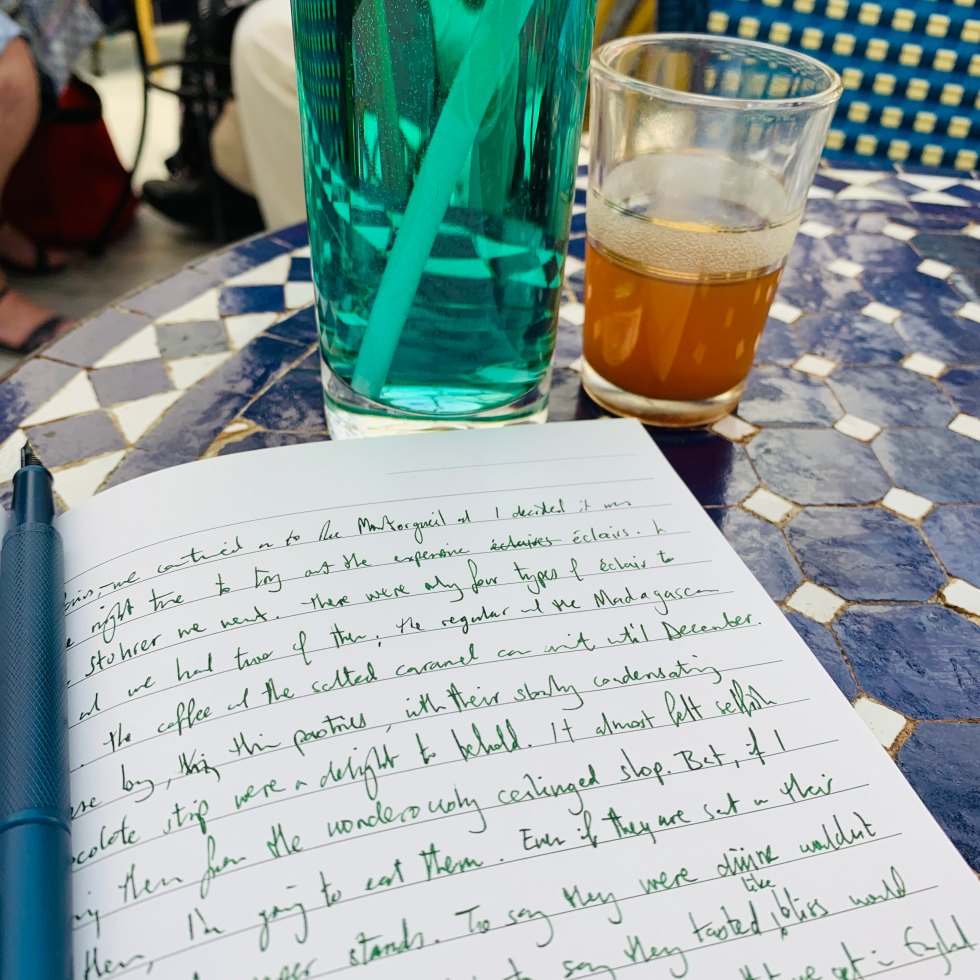 we continued on to Rue Montorgueil and I decided it was
right time to try out the expensive éclaires éclairs. In
stohrer we went. There were only four types of éclair to
and we had two of them, the regular and the Madagascan
the coffee and the salted caramel can wait until December.
big, thin pastries, with their slowly condensating
strip were a delight to behold. It almost felt selfish
them from the wonderously ceilinged shop. But, if I
them, I'm going to eat them. Even if they are sat in their
stands. To say they were divine wouldn't
to say they tasted like bliss would
England